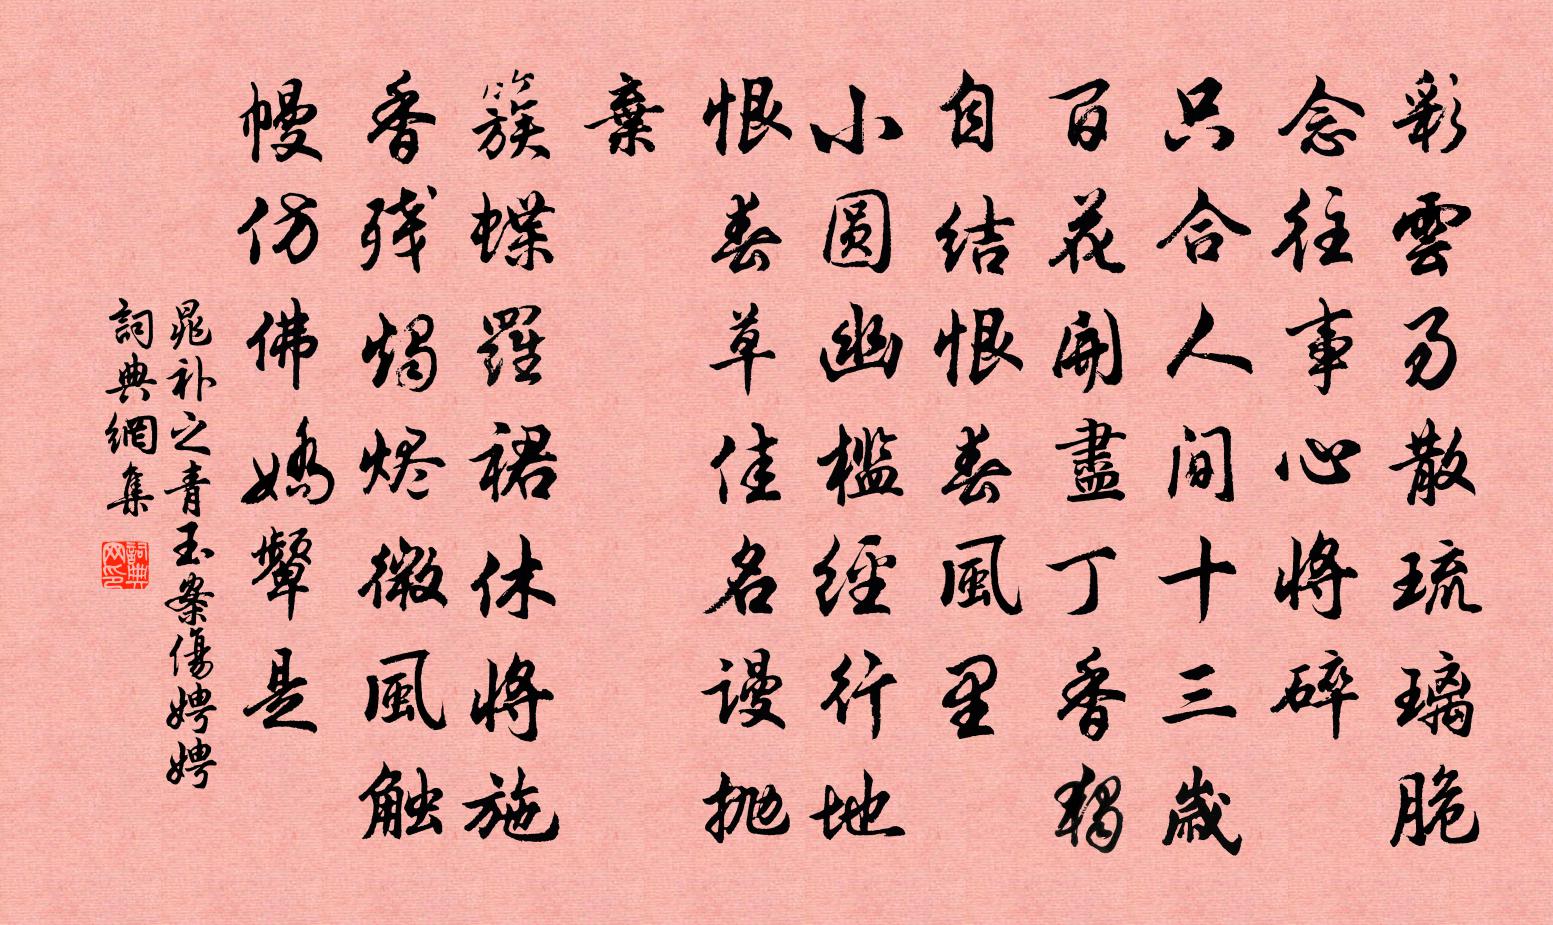 彩雲易散琉璃脆
念往事心將碎
只合人間十三歲
百花開盡丁香獨
自結恨春風里
小圆幽檻經行地
恨春草佳名谩抛
棄
簇蝶羅裙休將施
香残燭烬微風触
幔仿佛嬌顰是
晁补之青玉案傷娉娉
詞典網集
詞典网印